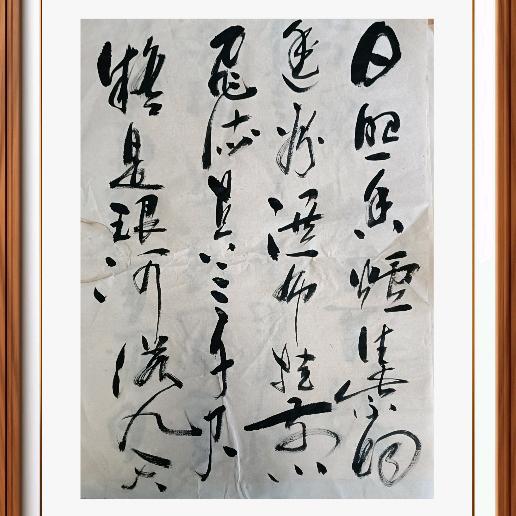 日照香爐生紫烟
遥看瀑布挂前川
飛流直下三千尺
疑是銀河落九天